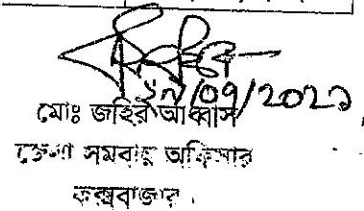 ১৭/০৭/২০২১
মোঃ জহির আব্বাস
জেলা সমবায় অফিসার
কক্সবাজার।